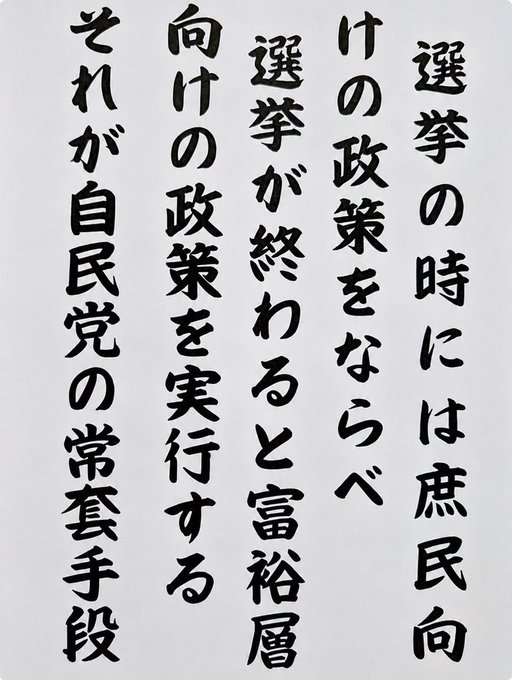 選挙の時には庶民向
けの政策をならべ
選挙が終わると富裕層
向けの政策を実行する
それが自民党の常套手段